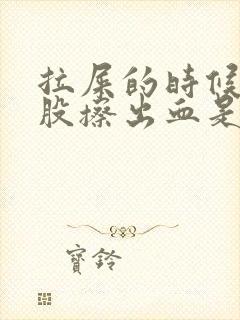 拉屎的时候
股擦出血是
寶鈴